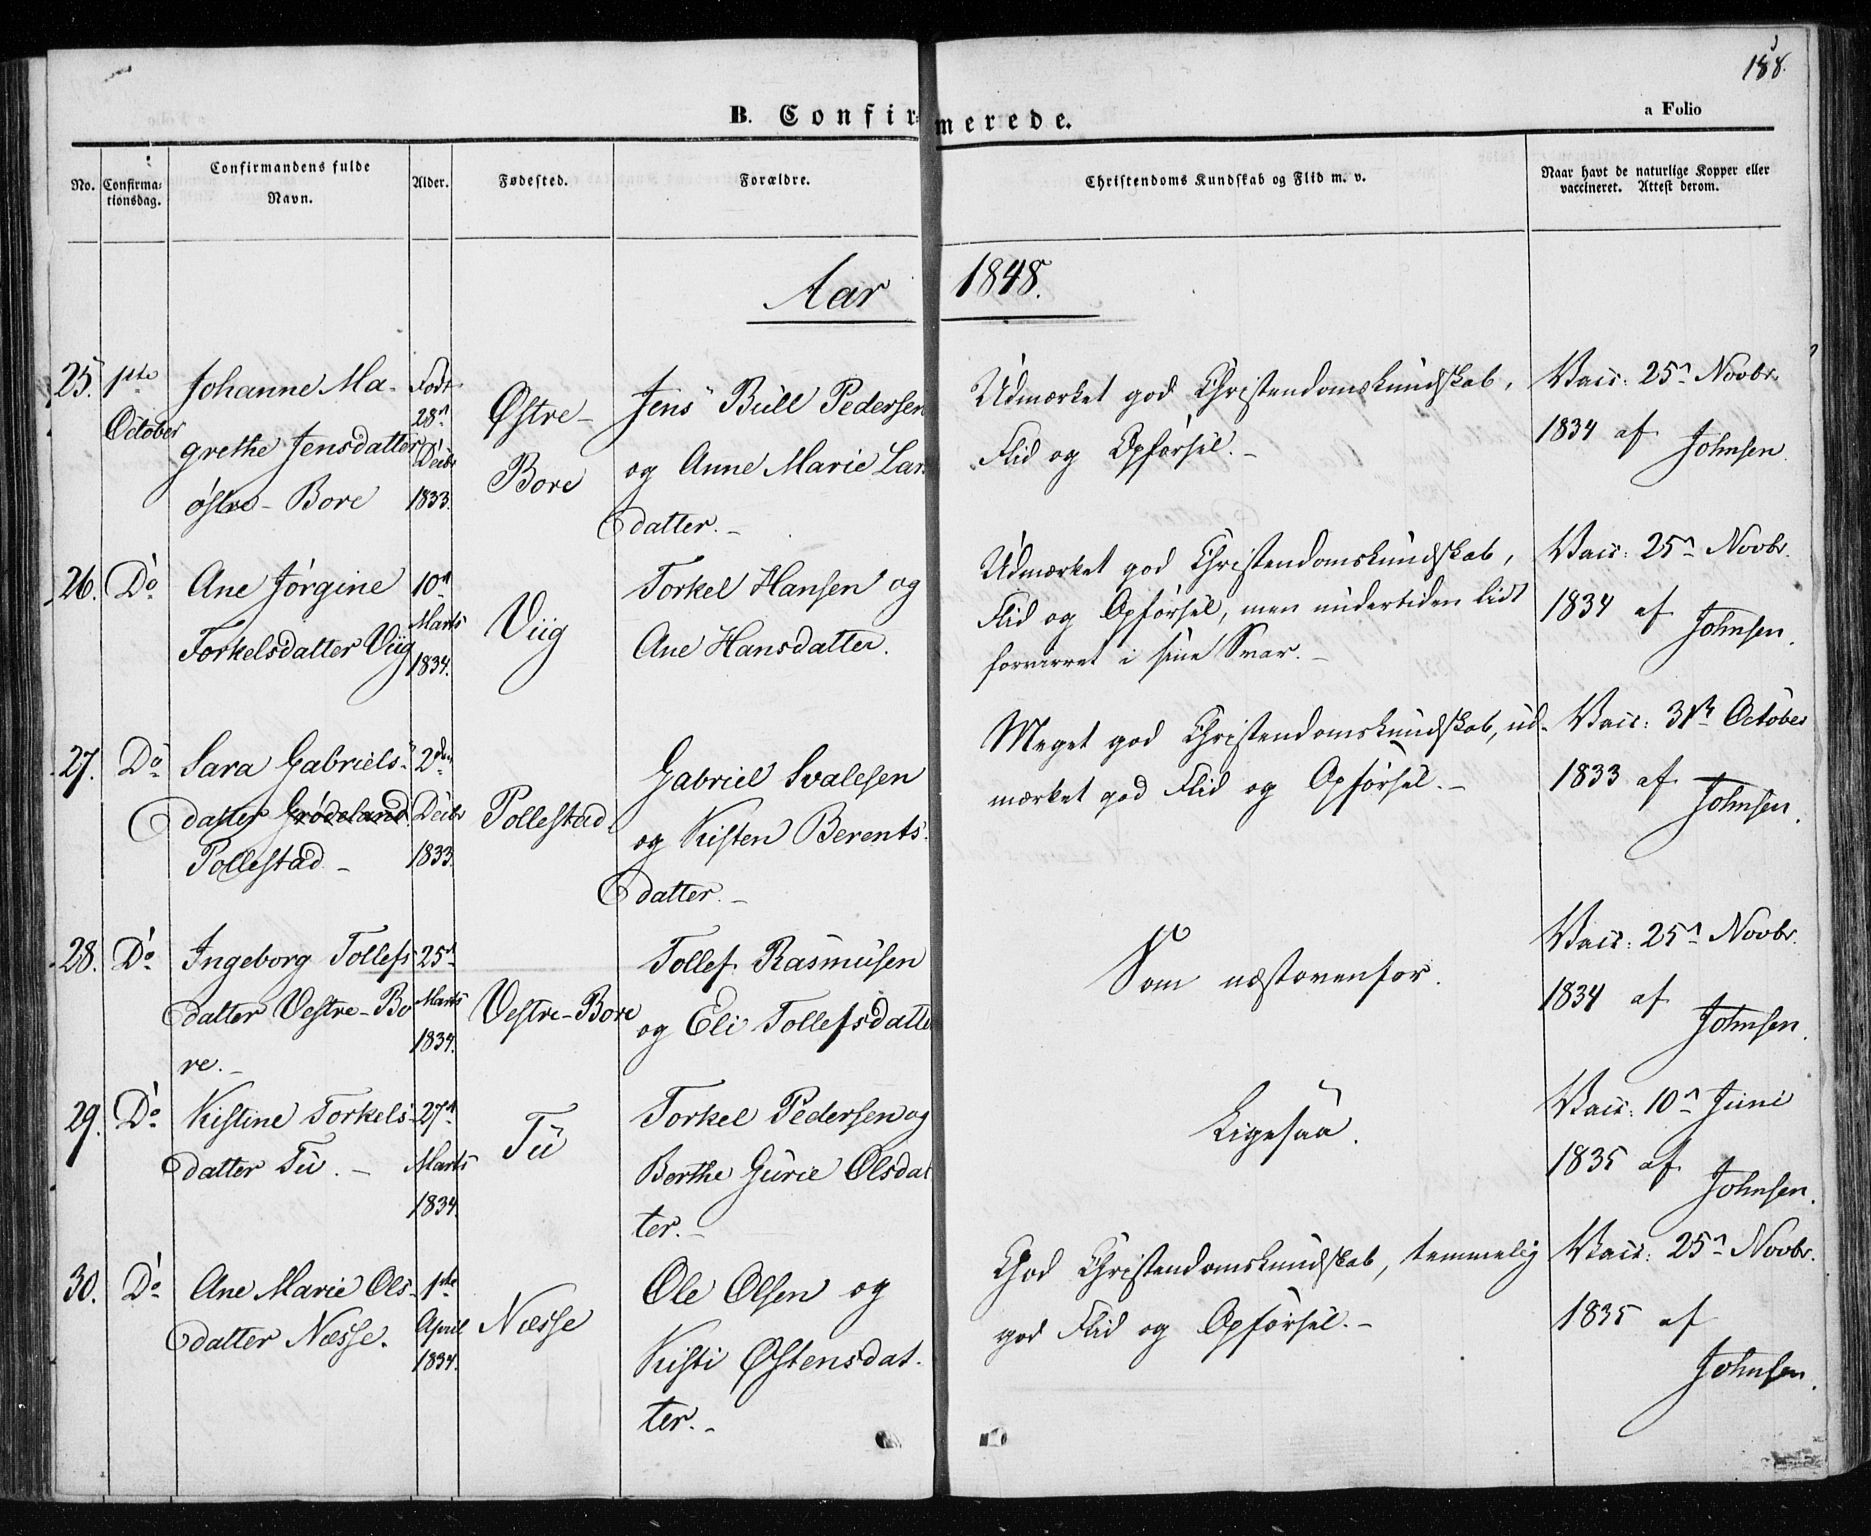 188.
B. Confirmerede.
a Folio
No.
Confirma-
tionsdag.
Confirmandens fulde
Navn.
Alder.
Fødested.
Forældre.
Christendoms Kundskab og Flid m. v.
Naar havt de naturlige Kopper eller
vaccineret. Attest derom.
Aar 1848.
25. 1ste
October
Johanne Ma-
grethe Jensdatter
østre-Bore
Født
28de
Decbr
1833.
Østre-
Bore
Jens Bull Pedersen
og Anne Marie Lar
datter.-
Udmærket god Christendomskundskab,
Flid og Opførsel.-
Vacc: 25de Novbr.
1834 af
Johnsen.
26. Do
Ane Jørgine
Torkelsdatter Viig
10de
Marts
1834.
Viig
Torkel Hansen og
Ane Hansdatter.
Udmærket god Christendomskundskab,
Flid og Opførsel, men undertiden lidt
forvirret i sine Svar.-
Vacc: 25de Novbr.
1834 af
Johnsen.
27. Do
Sara Gabriels-
datter Grødeland.
Pollestad.-
2den
Decbr
1833.
Pollestad
Gabriel Svalesen
og Kisten Berents-
datter.-
Meget god Christendomskundskab, ud-
mærket god Flid og Opførsel.-
Vacc: 31te October
1833 af
Johnsen.
28. Do
Ingeborg Tollefs
datter Vestre-Bo
re.-
25de
Marts
1834.
Vestre-Bore
Tollef Rasmusen
og Eli Tollefsdatte
Som næstovenfor.
Vacc: 25de Novbr.
1834 af
Johnsen.
29. Do
Kistine Torkels-
datter Tu.-
27de
Marts
1834.
Tu
Torkel Pedersen og
Berthe Gurie Olsdat
ter.-
Ligesaa.
Vacc: 10de Juni
1835 af
Johnsen.
30. Do
Ane Marie Ols-
datter Næsse.
1ste
April
1834.
Næsse
Ole Olsen og
Kisti Østensdat-
ter.-
God Christendomskundskab, temmelig
god Flid og Opførsel.-
Vacc: 25de Novbr.
1835 af
Johnsen.